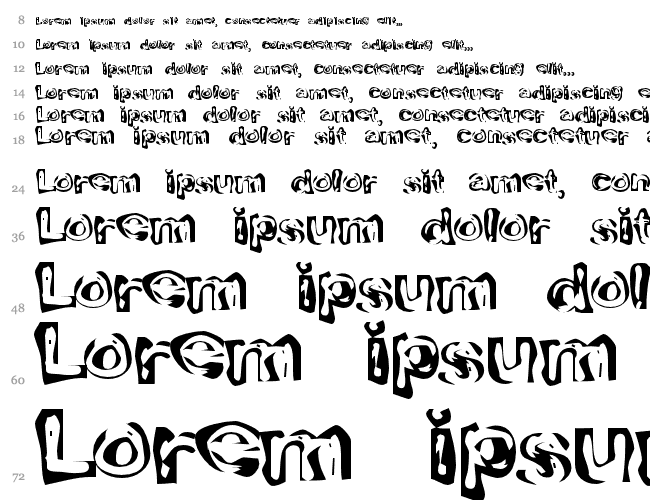 8 Lorem ipsum dolor sit amet, consectetuer adipiscing elit...
10 Lorem ipsum dolor sit amet, consectetuer adipiscing elit...
12 Lorem ipsum dolor sit amet, consectetuer adipiscing elit...
14 Lorem ipsum dolor sit amet, consectetuer adipiscing e
16 Lorem ipsum dolor sit amet, consectetuer adipisci
18 Lorem ipsum dolor sit amet, consectetuer a
24 Lorem ipsum dolor sit amet, con
36 Lorem ipsum dolor sit
48 Lorem ipsum dol
60 Lorem ipsum
72 Lorem ipsu